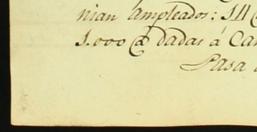 nian ampleados: III
1.000 @ dadas á Car
Pasa